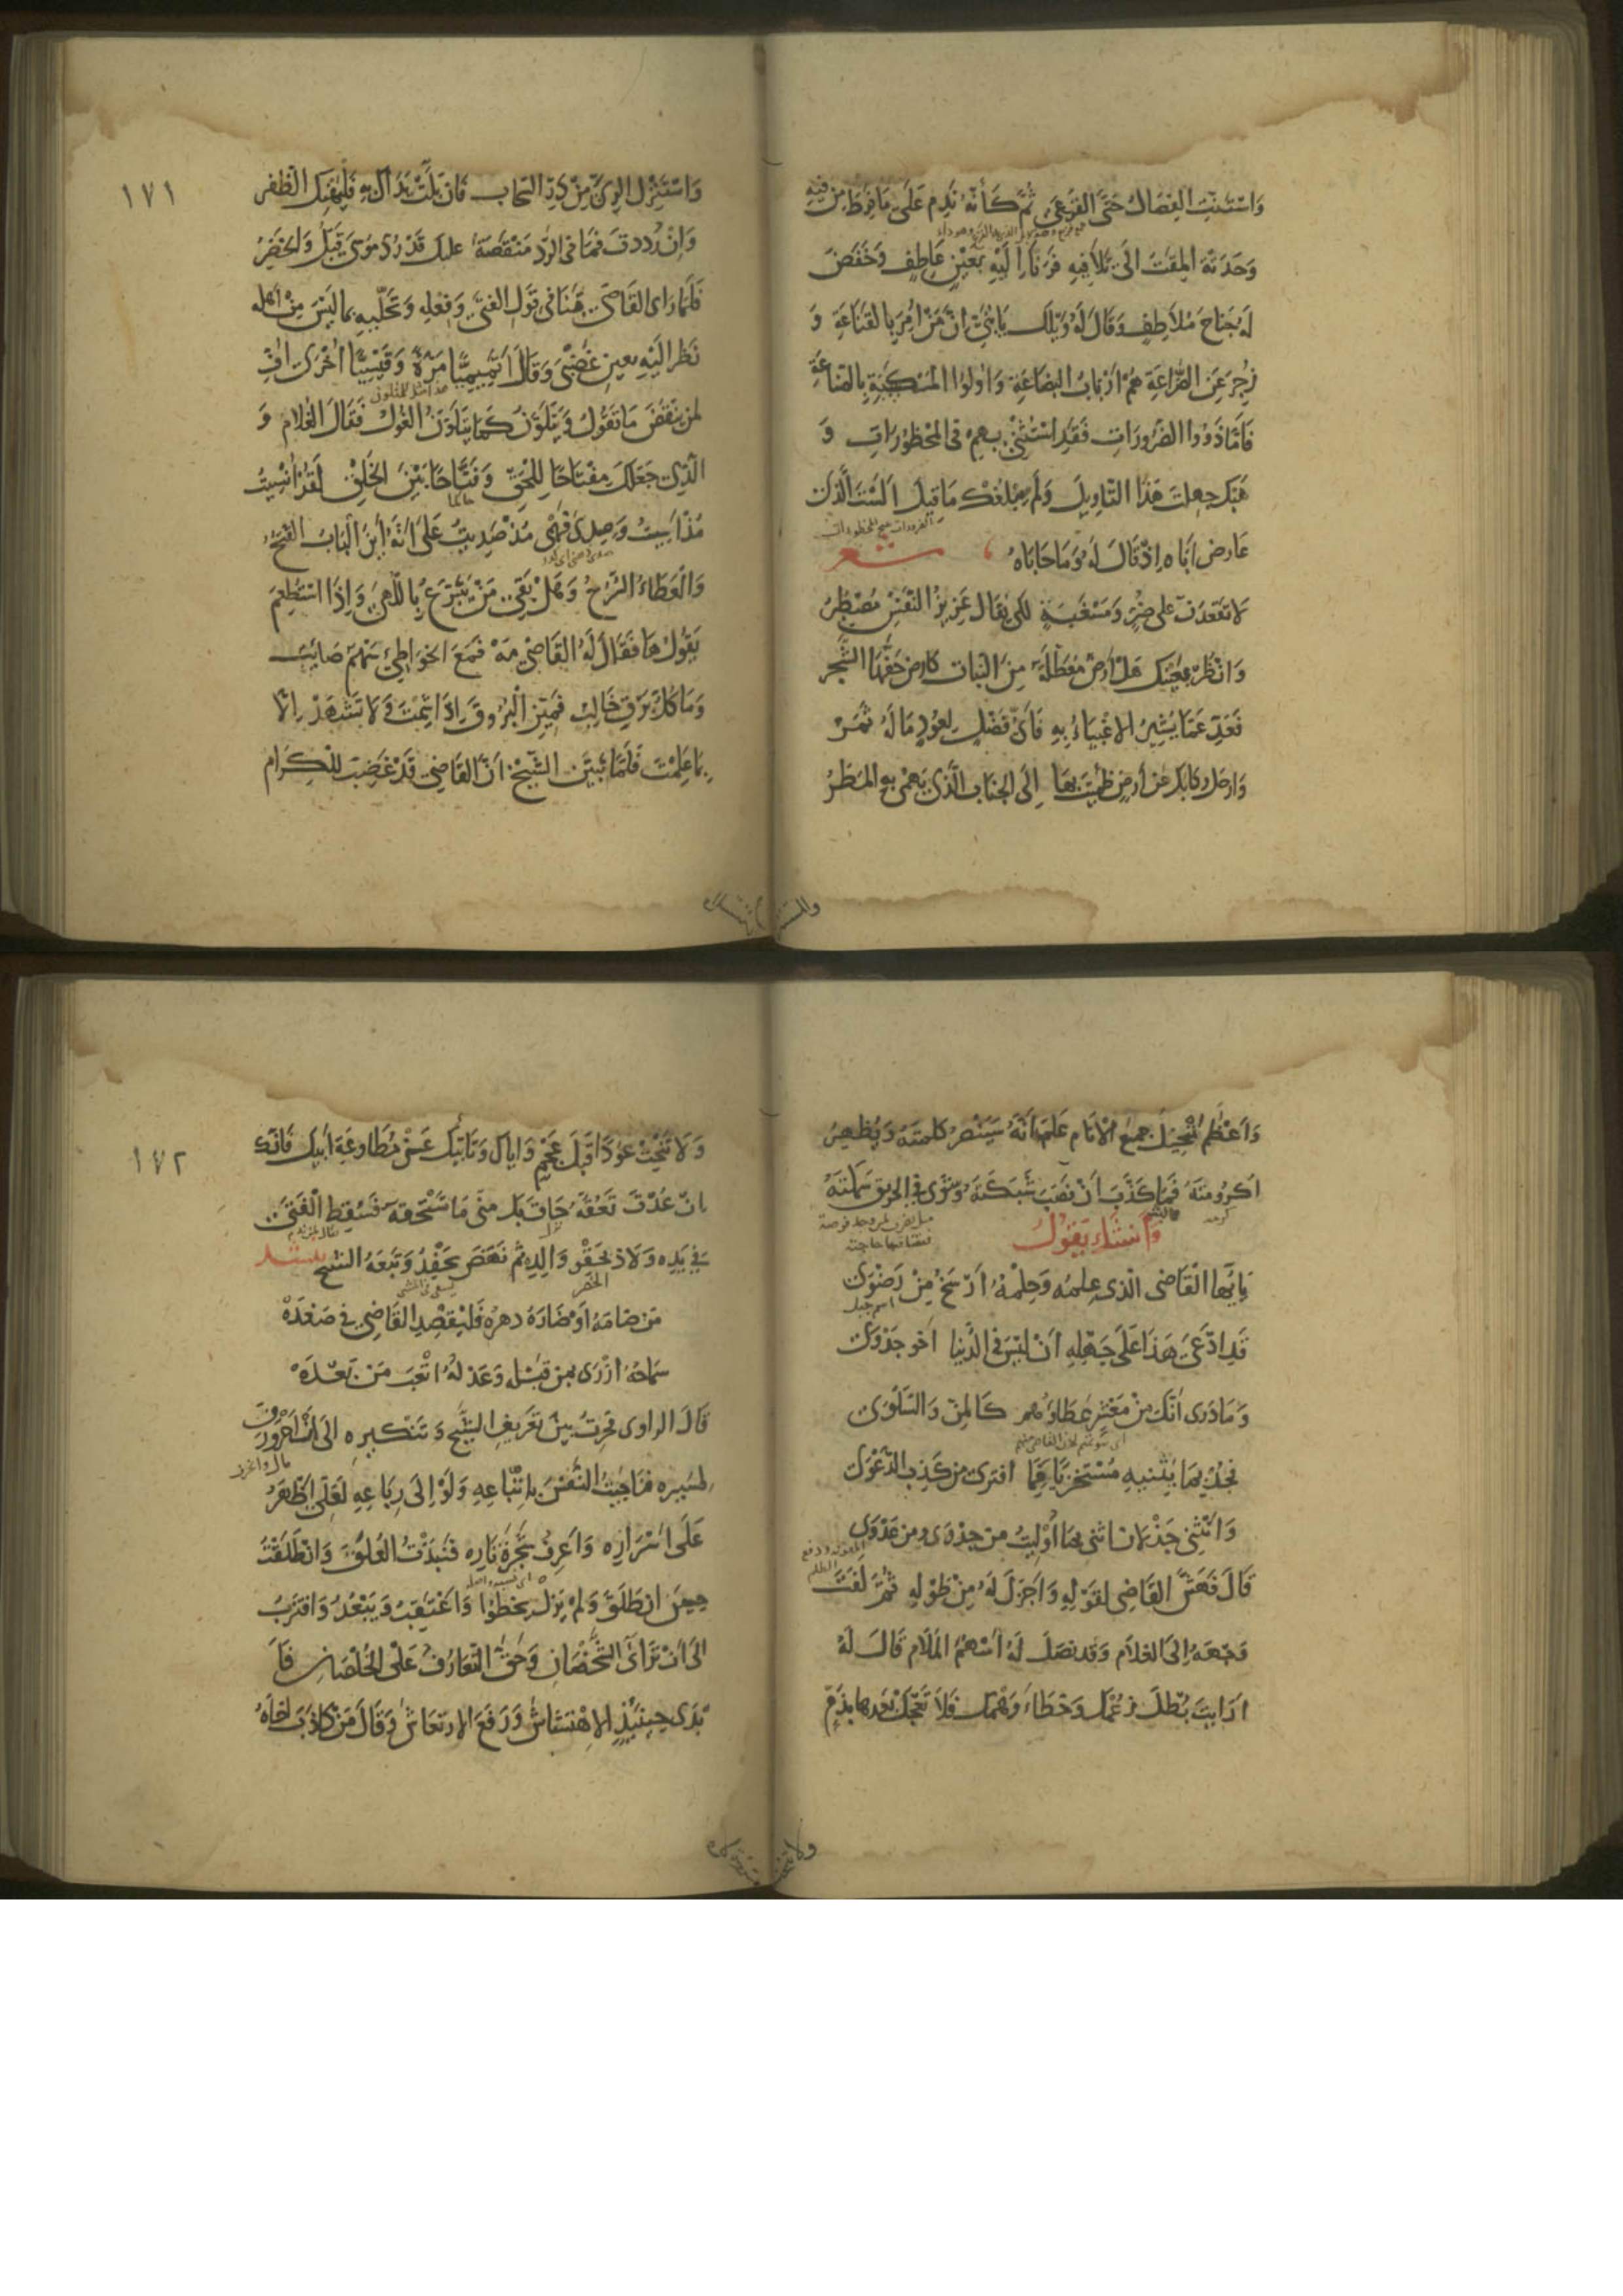 وَاسْتَنَّتِ الفِصَالُ حَتَّى القَرْعَى ثُمَّ كَأَنَّهُ نَدِمَ عَلَى مَا فَرَطَ مِنْ فِيهِ
وَحَدَتْهُ المِقَةُ الى تَلافِيهِ فَرَنَا اِلَيْهِ بِعَيْنٍ عَاطِفٍ وَخَفَضَ
لَهُ جَنَاحَ مُلاطِفٍ وَقَالَ لَهُ وَيْلَكَ يَا بُنَيَّ اِنَّ مَنْ اُمِرَ بِالقَنَاعَةِ وَ
زُجِرَ عَنِ الضَّرَاعَةِ هُمْ اَرْبَابُ البِضَاعَةِ وَاُولُوا المَكْسَبَةِ بِالصِّنَاعَةِ
فَاَمَّا ذَوُوا الضَّرُورَاتِ فَقَدِ اسْتُثْنِيَ بِهِمْ فى المَحْظُورَاتِ وَ
هَبْكَ جهِلْتَ هَذَا التَّاوِيلَ وَلَمْ يَبْلُغْكَ مَا قِيلَ اَلَسْتَ الَّذِى
الضرورات تبيح المحظورات
عَارضَ اَبَاه اِذْ قَالَ لَهُ وَمَا حَابَاهُ شعر
لا تَقعُدَنَّ على ضُرٍّ وَمَسْغَبَةٍ لكى يُقَال عَزِيزُ النَّفْسِ مُصْطَبِرُ
وَانْظُرْ بِعَيْنِكَ هَلْ اَرضٌ مُعَطَّلَةٌ مِنَ النَّبَاتِ كارضٍ حَفَّهَا الشَّجر
فَعَدِّ عَمَّا يُشِيرُ الاغْبِيَاءُ بِهِ فَاَىُّ فَضْلٍ لِعُودٍ مَا لَهُ ثَمَرُ
وَارحل ركابك عَن اَرضٍ ظَمِئْتَ بهَا اِلَى الجَنَابِ الَّذى يَهْمِى بِهِ المَطَرُ
١٧١
وَاسْتَنْزِلِ الرِىَّ مِنْ دَرِّ السَّحَابِ فَان بُلَّتْ يَدَاكَ بِهِ فَلْيَهْنِكَ الظَّفر
وَاِنْ رُددتَ فَمَا فى الرَّدِّ مَنْقَصَةٌ عليك قَدْ رُدَّ مُوسَى قَبْلُ وَالخَضِرُ
فَلَمَّا رَاى القَاضِى تَنَافى قَوْلِ الفَتَى وَفِعْلِهِ وَتَحَلِّيهِ بِمَا لَيْسَ مِنْ اَهله
نَظَرَ اِلَيْهِ بعينِ غَضْبَى وَقَالَ اَتَمِيمِيًّا مَرَّةً وَقَيْسِيًّا اُخْرَى اُفٍّ
هذا مثل للمتلون
لمن يَنْقُضُ مَا يَقُولُ وَيَتَلَوَّنُ كَمَا يَتَلَوَّنُ الغُولُ فَقَالَ الغُلام وَ
الَّذِى جَعَلَكَ مِفْتَاحًا لِلْحَقِّ وَفَتَّاحًا بَيْنَ الخَلْقِ لَقَدْ اُنْسِيتُ
حاكما
مُذْ اَسِيتُ وَصَدِئَ ذِهْنِى مُذْ صَدِيتُ عَلَى اَنَّهُ اَيْنَ البَابُ الفُتُحُ
وَالعَطَاءُ السُّرُحُ وَهَلْ بَقِىَ مَنْ يَتَبَرَّعُ بِاللُّهَى وَاِذَا اسْتُطْعِمَ
يَقُولُ هَا فَقَالَ لَهُ القَاضِى مَهْ فَمَعَ الخَوَاطِئِ سَهْمٌ صَائِبٌ
وَمَا كُلُّ بَرْقٍ خَالِبٌ فَمَيِّزِ الْبُرُوقَ اِذَا شِمْتَ وَ لا تَشْهَدْ اِلّا
بِمَا عَلِمْتَ فَلَمَّا تَبَيَّنَ الشَّيْخُ اَنَّ القَاضِى قَدْ غَضِبَ لِلْكِرَام
وَاَعْظَمَ تَبْخِيلَ جَمِيعِ الاَنَام عَلِمَ اَنَّهُ سَيَنْصُرُ كَلِمَتَهُ وَيُظْهِرُ
اُكْرُومَتَهُ فَمَا كَذَّبَ اَنْ نَصَبَ شَبَكَتَهُ وَشَوَى فى الحَرِيقِ سَمَكَتَهُ
كرمه
مثل يضرب لمن وجد فرصة
فقضا فيها حاجته
وَاَنْشَاءَ يَقُولُ
يَا اَيُّهَا الْقَاضِى الَّذِى عِلمُهُ وَحِلْمُهُ اَرْسَخُ مِنْ رَضْوَى
اسم جبل
قَدِ ادَّعَى هَذَا عَلَى جَهْلِهِ اَنْ لَيْسَ فى الدُّنيا اَخُو جَدْوَى
وَ مَا دَرى اَنَّكَ مِنْ مَعْشَرٍ عَطَاؤُهُم كَالمَنِّ وَالسَّلْوَى
فَجُدْ بِمَا يُثْنِيهِ مُسْتَخْزِيًا مِمَّا افترى مِن كَذِبِ الدَّعْوَى
وَاَنْثَنِى جَذْلانَ اُثنى بِمَا اُوْلِيتُ مِن جدْوَى وِمن عَدْوَى
المعونة ودفع الظلم
قَالَ فَهَشَّ القَاضِى لِقَوْلِهِ وَاَجزَلَ لَهُ مِنْ طَوْلِهِ ثُمَّ لَفَتَ
وَجْهَهُ اِلَى الغُلام وَقَد نَصَلَ لَهُ اَسْهُمَ المَلَام قَالَ لَهُ
اَرَاَيتَ بُطْلَ زَعْمِكَ وَخَطَاءَ وَهْمِكَ فَلا تَعْجَلْ بَعْدهَا بِذَمٍّ
ولا تنحت
١٧٢
وَ لا تَنْحِتْ عوْدًا قَبْلَ عَجْمٍ وَاِيَّاكَ وَتَاَبِّيَكَ عَنْ مُطَاوعَةِ اَبِيكَ فَانّك
اِنْ عُدْتَ تَعُقُّهُ حَاقَ بِكَ مِنِّى مَا تَسْتَحِقّهُ فَسُقِطَ الْفَتَى
فى يَدِهِ وَلاذ بِحَقْوِ وَالِدِهِ ثُم نَهَضَ يَحْفِدُ وَتَبِعَهُ الشيخ ينشد
الخصر
يسعى فى المشى
مَن ضَامَهُ اَوْ ضَارَهُ دهرُهُ فَلْيَقْصِدِ القَاضِى فى صَعْدَهْ
سَمَاحُهُ اَزْرَى بِمَن قَبْلَهُ وَعَدْلُهُ اَتْعَبَ مَنْ بَعْدَهْ
قَالَ الراوى فَحِرْتُ بَيْنَ تَعْرِيفِ الشَّيْخ وَتَنْكِيرِه اِلَى اَنِ احْرَوْرَفَ
مال وانحرف
لِمَسِيرِه فَنَاجَيْتُ النَّفْسَ بِاِتِّبَاعِهِ وَلَوْ اِلَى رِبَاعِهِ لَعَلِّى اَظْهَرُ
عَلَى اَسْرَارِهِ وَاَعرِفُ شَجَرَةَ نَارِه فَنَبَذْتُ العُلَقَ وَانْطَلَقْتُ
حِيثُ انْطَلَقَ وَلَمْ يَزَلْ يَخْطُو وَاَعْتَقِبُ وَيَبْعُدُ وَاَقْتَرِبُ
اِلَى اَنْ تَرَاَى الشَّخْصَانِ وَحَقَّ التَّعَارُفُ عَلَى الخُلْصَانِ فَاَ
بْدَى حِينَئِذٍ الاِهْتِشَاشَ وَرَفَعَ الاِرتِعَاشَ وَقَالَ مَنْ كَاذَبَ اَخَاهُ